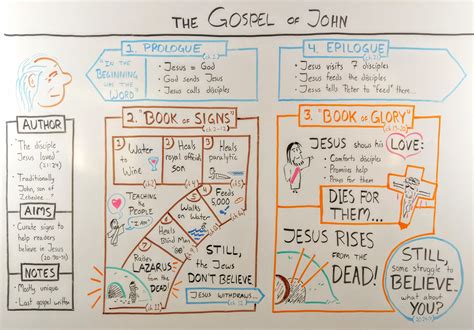 THE GOSPEL OF JOHN
1. PROLOGUE
(ch.1)
"IN THE
BEGINNING
WAS THE
WORD"
• Jesus = God
• God sends Jesus
• Jesus calls disciples
4. EPILOGUE
• Jesus visits 7 disciples
• Jesus feeds the disciples
• Jesus tells Peter to "feed" them...
AUTHOR
• "The disciple
Jesus loved"
(21:24)
• Traditionally
John, son of
Zebedee
AIMS
• Curate signs to
help readers
believe in Jesus
(20:30-31)
NOTES
• Mostly unique
• Last gospel written
2. "BOOK OF SIGNS"
(ch.2-12)
1 Water
to
Wine
2 Heals
royal official's
son
3 Heals
paralytic
4 Feeds
5,000
5 Walks
on Water
6 Heals
Blind Man
7 Raises
LAZARUS
from the
DEAD!
TEACHING
THE
PEOPLE
"I AM"
STILL,
the Jews
DON'T BELIEVE.
Jesus withdraws...
3. "BOOK OF GLORY"
JESUS shows his
LOVE:
• Comforts disciples
• Promises help
• Prays for them
DIES FOR
THEM...
JESUS RISES
FROM THE
DEAD!
STILL,
some struggle to
BELIEVE.
what about
YOU?